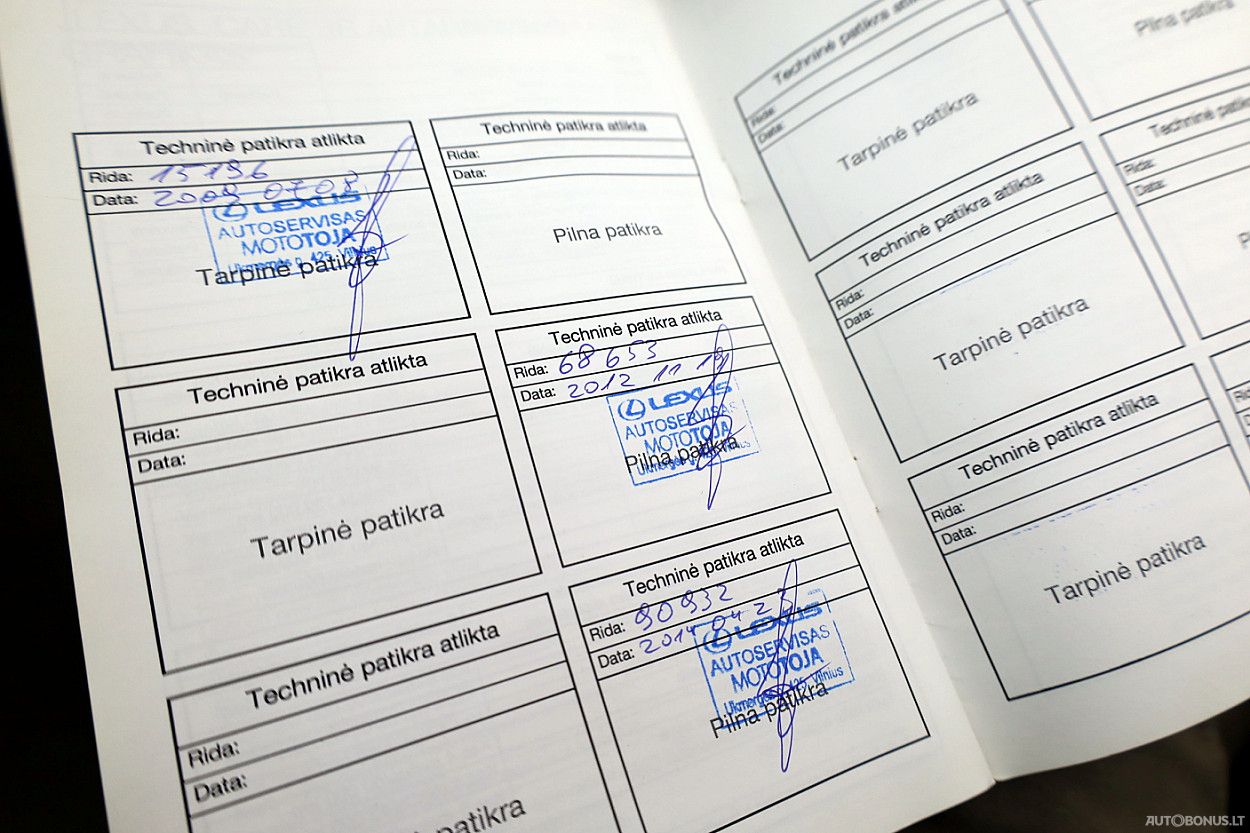 Techninė patikra atlikta
Rida: 15196
Data: 2009 07 08
LEXUS
AUTOSERVISAS
MOTOTOJA
Ukmergės g. 425, Vilnius
Tarpinė patikra
Techninė patikra atlikta
Rida:
Data:
Pilna patikra
Techninė patikra atlikta
Rida:
Data:
Tarpinė patikra
Techninė patikra atlikta
Rida: 68 653
Data: 2012 11 19
LEXUS
AUTOSERVISAS
MOTOTOJA
Ukmergės g. 425, Vilnius
Pilna patikra
Techninė patikra atlikta
Rida:
Data:
patikra
Techninė patikra atlikta
Rida: 90932
Data: 2014 04 23
LEXUS
AUTOSERVISAS
MOTOTOJA
Ukmergės g. 425, Vilnius
Pilna patikra
Techninė patikra atlikta
Rida:
Data:
Tarpinė patikra
Pilna patikra
Techninė patikra atlikta
Rida:
Data:
Tarpinė patikra
Techninė patikra
Rida:
Data:
Techninė patikra atlikta
Rida:
Data:
Tarpinė patikra
AUTOBONUS.LT